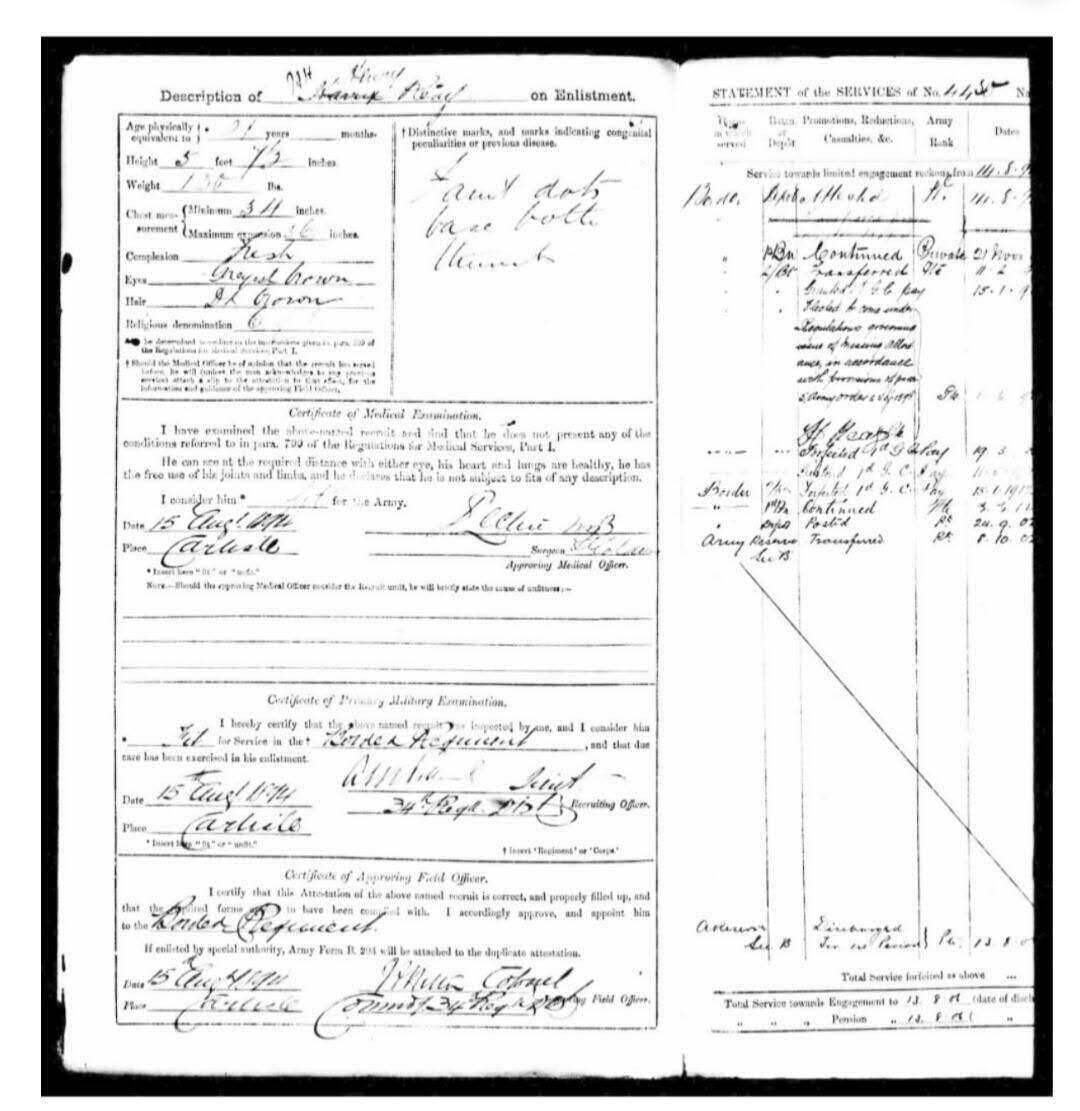 Henry
Description of Harry Hay on Enlistment.
Age physically equivalent to years months.
Height 5 feet 7½ inches.
Weight lbs.
Chest measurement Minimum 34 inches.
Maximum expansion 36 inches.
Complexion Fresh
Eyes Brown
Hair Dk Brown
Religious denomination C
to be determined according to the instructions given in para. 799 of
the Regulations for Medical Services, Part I.
† Should the Medical Officer be of opinion that the recruit has served
before, he will (unless the man acknowledges to any previous
service) attach a slip to the attestation to that effect, for the
information and guidance of the approving Field Officer.
† Distinctive marks, and marks indicating congenital
peculiarities or previous disease.
faint dots
base both
Certificate of Medical Examination.
I have examined the above-named recruit and find that he does not present any of the
conditions referred to in para. 799 of the Regulations for Medical Services, Part I.
He can see at the required distance with either eye, his heart and lungs are healthy, he has
the free use of his joints and limbs, and he declares that he is not subject to fits of any description.
I consider him * fit for the Army.
Date 15 Augt 1894
Place Carlisle
Surgeon
Approving Medical Officer.
* Insert here "fit" or "unfit."
NOTE.—Should the approving Medical Officer consider the Recruit unfit, he will briefly state the cause of unfitness:—
Certificate of Primary Military Examination.
I hereby certify that the above named recruit was inspected by me, and I consider him
* Fit for Service in the † Border Regiment, and that due
care has been exercised in his enlistment.
Date 15th Augt 1894 Lieut
34th Regtl Dist Recruiting Officer.
Place Carlisle
* Insert here "fit" or "unfit."
† Insert 'Regiment' or 'Corps.'
Certificate of Approving Field Officer.
I certify that this Attestation of the above named recruit is correct, and properly filled up, and
that the required forms to have been complied with. I accordingly approve, and appoint him
to the Border Regiment.
If enlisted by special authority, Army Form B. 203 will be attached to the duplicate attestation.
Date 15 Aug 1894 Colonel
Place Carlisle Commdg 34th Regtl Field Officer.
STATEMENT of the SERVICES of No. 445 Na
in which served
Regn. or Depôt
Promotions, Reductions, Casualties, &c.
Army Rank
Dates
Service towards limited engagement reckons from 14.8.9
Border Depot Attested Pt. 14.8.9
" Bn Continued Private 21 Nov
" 2/Bn Transferred Pte 11.2
" " Granted 1 G C Pay 15.1.9
" " Elected to come under
Regulations governing
issue of messing allow
ance, in accordance
with provisions of para
5, Army order 1898 Pte
Forfeited 1st G C Pay 19.3
Restored 1st G. C. Pay
Border Forfeited 1st G. C. Pay
" 1st Bn Continued Pte
" Depot Posted Pt 24.9.02
Army Reserve Transferred Pt 8.10.02
Sec B
Discharged
Sec B Ter 1st Period Pte. 13.8.0
Total Service forfeited as above ...
Total Service towards Engagement to 13.8.06 (date of disch
" " " Pension " 13.8.06 ( "